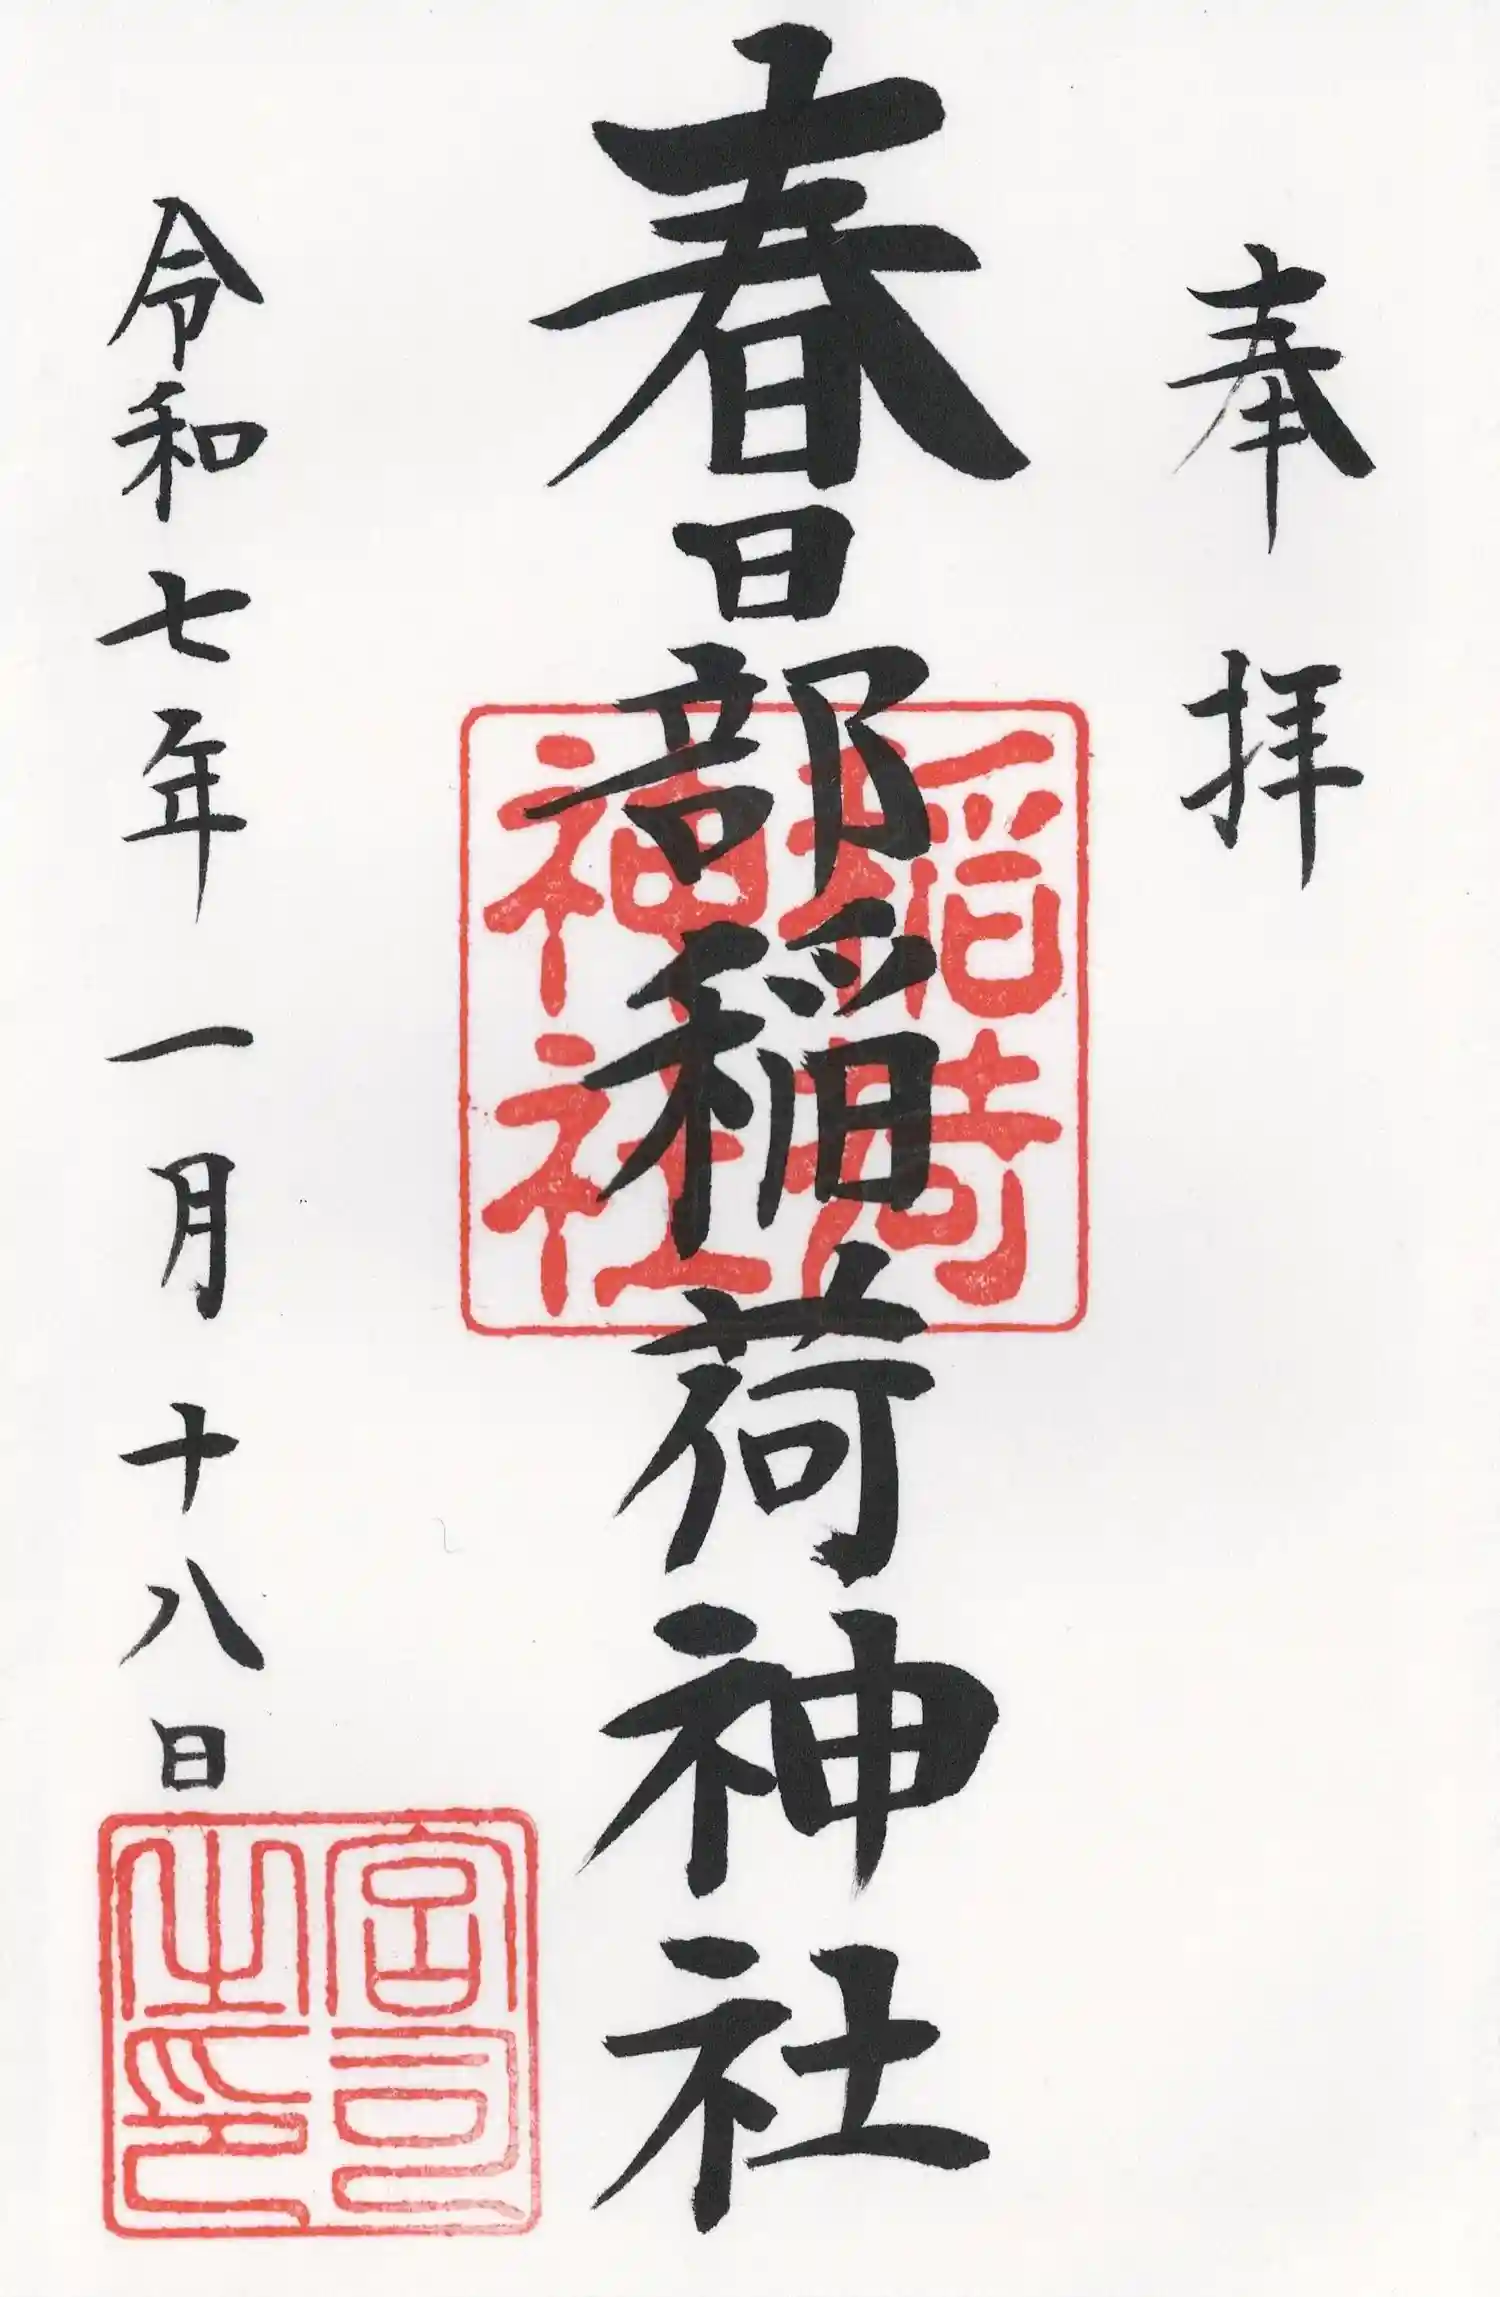 奉拝
春日部稲荷神社
稲荷
神社
令和七年一月十八日
宮司
之印